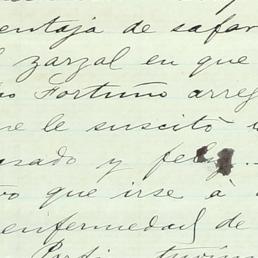 entaja de safar
zarzal en que
Fortuño arreg
ne le suscitó
usado y feliz...
vo que irse á
enfermedad de